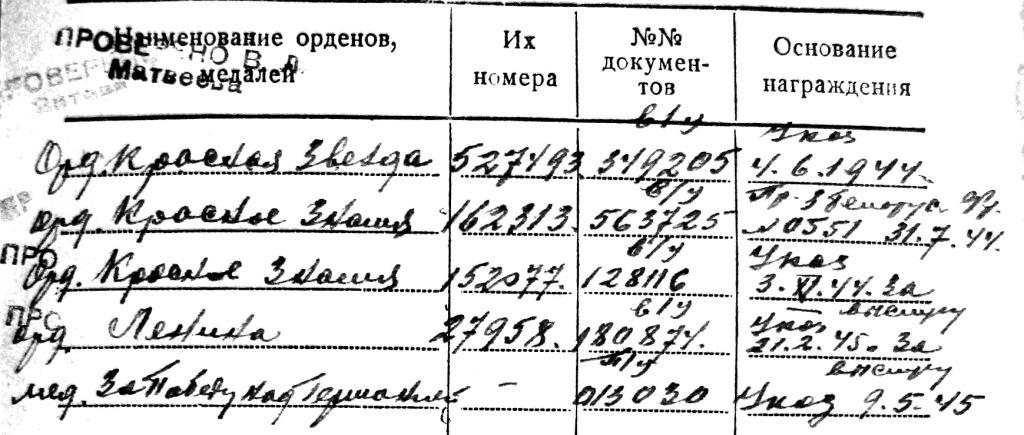 Наименование орденов, медалей
Их номера
№№ документов
Основание награждения
ПРОВЕРЕНО В Д
Матвеева
в/у Указ
Орд. Красная Звезда 527493 349205 4.6.1944
в/у Пр. 3 Белорус. Фр.
орд. Красное Знамя 162313 563725 №0551 31.7.44.
ПРО
в/у Указ
Орд. Красное Знамя 152077. 128116 3.XI.44. За выслугу
ПРО
в/у Указ
орд. Ленина 27958. 180874. 21.2.45. За выслугу
Т/у
мед. За Победу над Германией – 013030 Указ 9.5.45